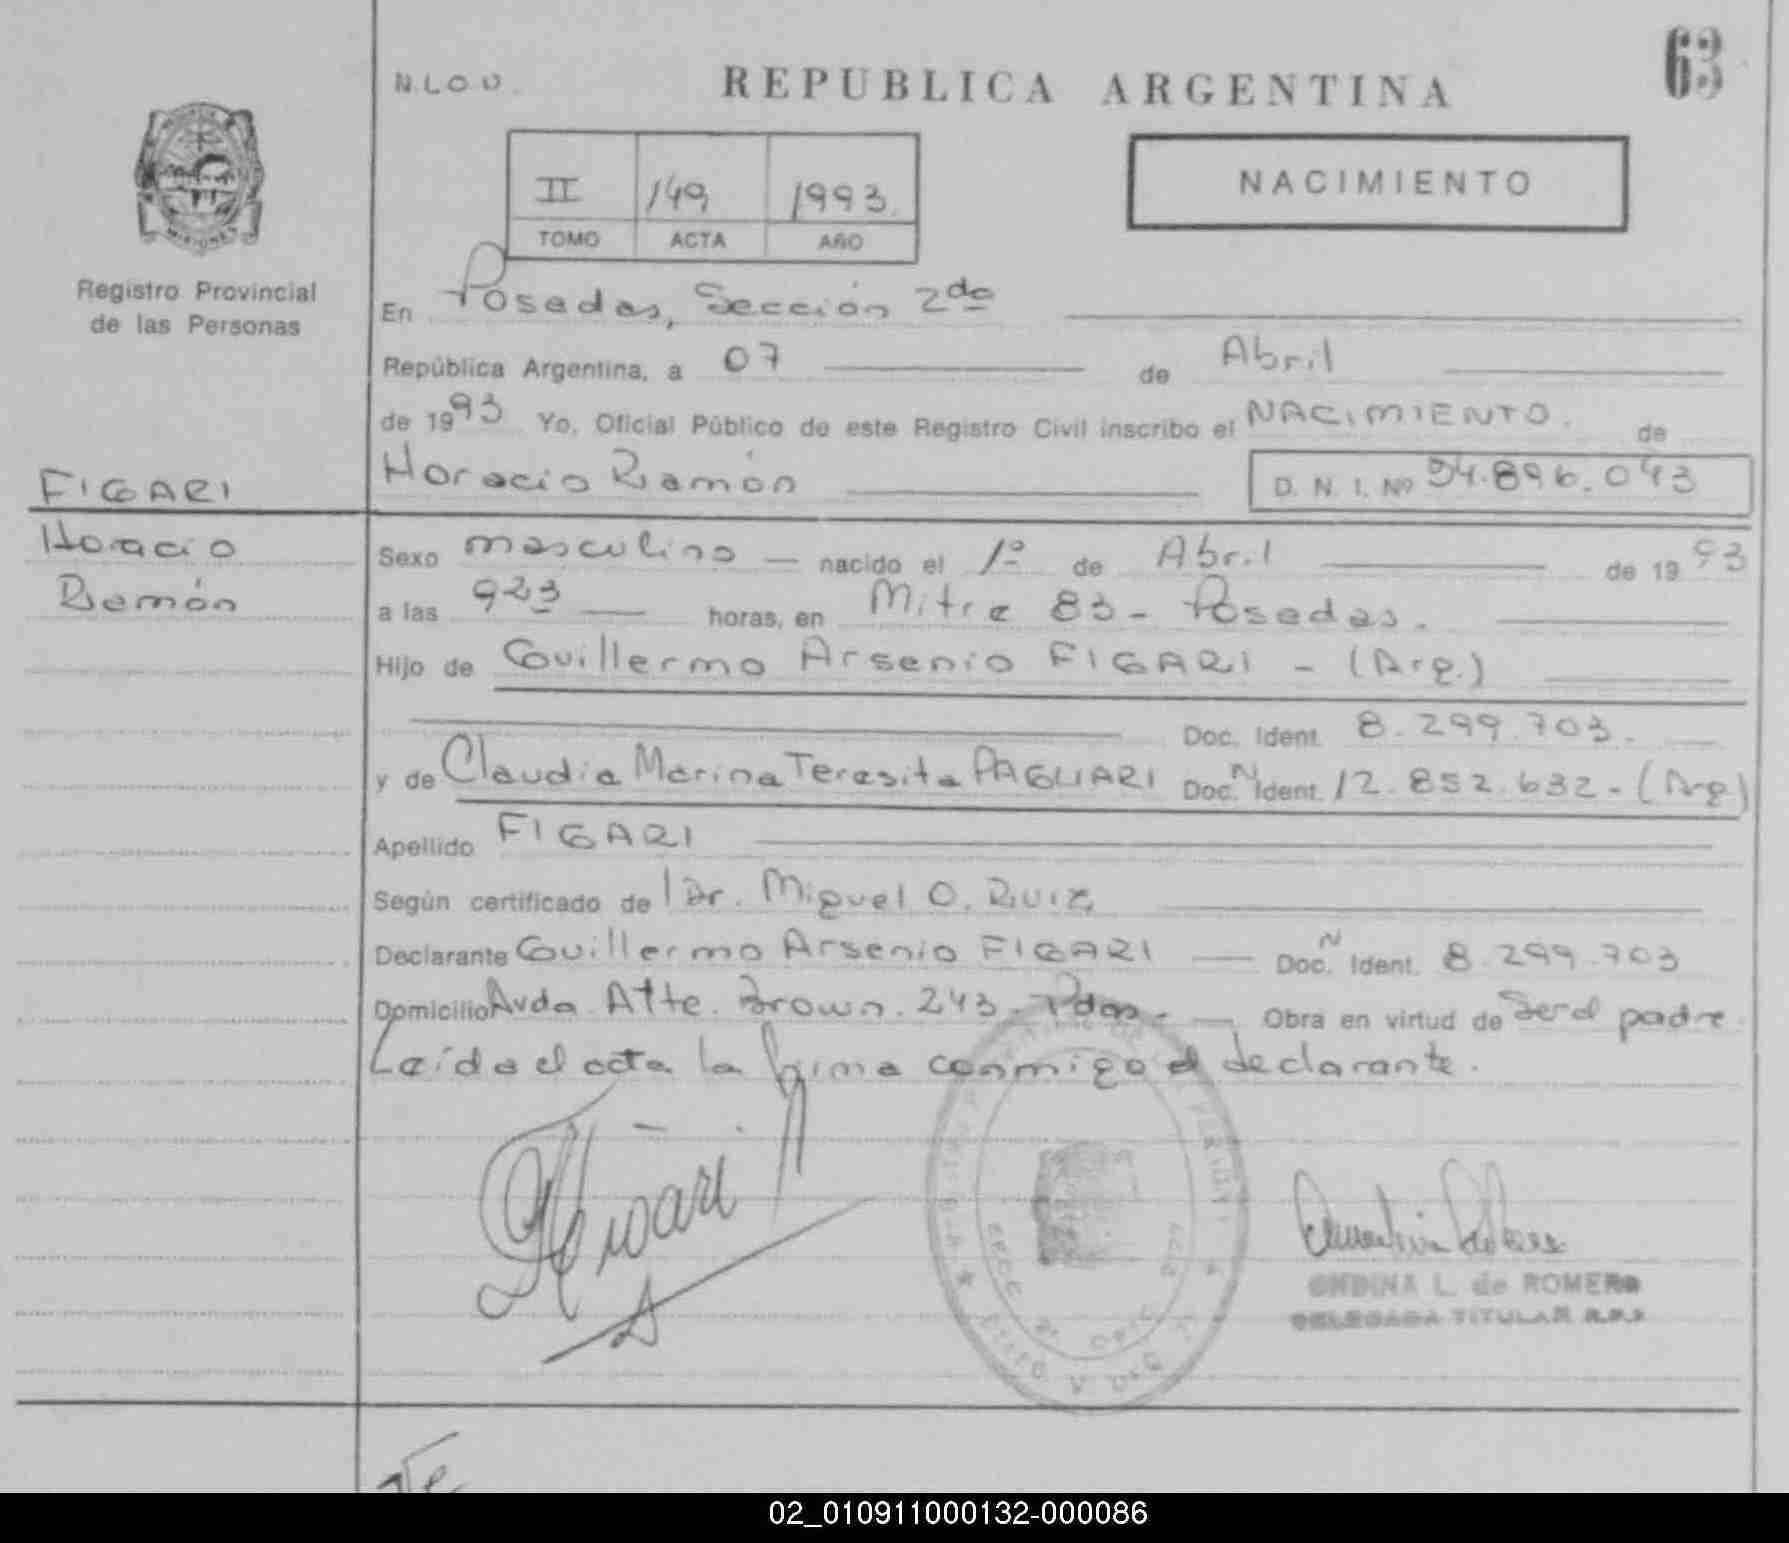 63
N.L.O.U.
REPUBLICA ARGENTINA
NACIMIENTO
II 149 1993
TOMO ACTA AÑO
MISIONES
Registro Provincial
de las Personas
En Posadas, Sección 2da
República Argentina, a 07 de Abril
de 1993 Yo, Oficial Público de este Registro Civil inscribo el NACIMIENTO. de
Horacio Ramón D. N. I. Nº 34.896.043
FIGARI
Horacio
Ramón
Sexo masculino — nacido el 1º de Abril de 1993
a las 923 — horas, en Mitre 83 - Posadas.
Hijo de Guillermo Arsenio FIGARI - (Arg.)
Doc. Ident. 8.299.703.
y de Claudia Marina Teresita PAGLIARI Doc. N Ident. 12.852.632 - (Arg)
Apellido FIGARI
Según certificado de Dr. Miguel O. Ruiz,
Declarante Guillermo Arsenio FIGARI — Doc. N Ident. 8.299.703
Domicilio Avda. Alte. Brown. 243 - Pdas. — Obra en virtud de Ser el padre.
Leída el acta la firma conmigo el declarante.
Figari
ONDINA L. de ROMERO
DELEGADA TITULAR R.P.P
02_010911000132-000086